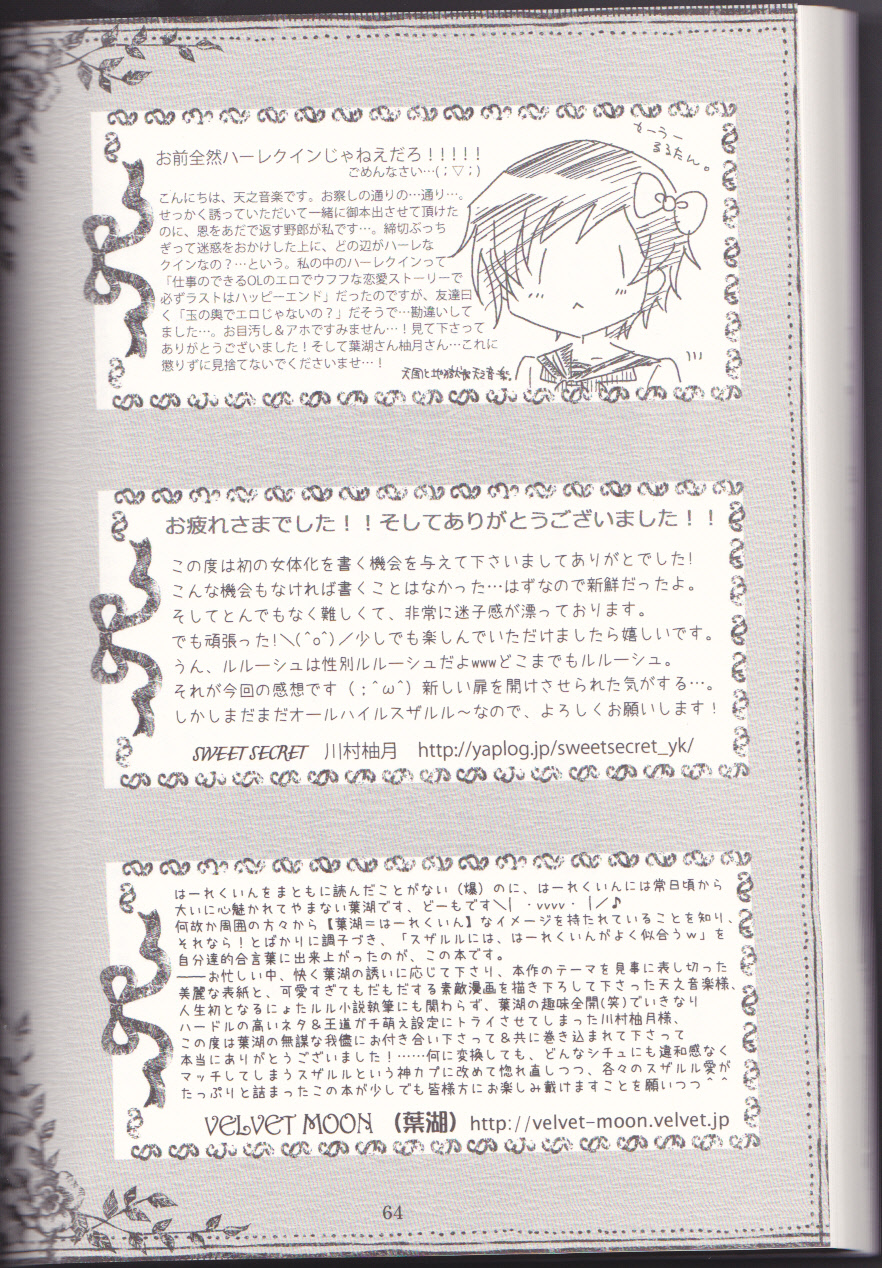 お前全然ハーレクインじゃねえだろ！！！！！
ごめんなさい…(；▽；)
こんにちは、天之音楽です。お察しの通りの…通り…。
せっかく誘っていただいて一緒に御本出させて頂けた
のに、恩をあだで返す野郎が私です…。締切ぶっち
ぎって迷惑をおかけした上に、どの辺がハーレな
クインなの？…という。私の中のハーレクインって
「仕事のできるOLのエロでウフフな恋愛ストーリーで
必ずラストはハッピーエンド」だったのですが、友達曰
く「玉の輿でエロじゃないの？」だそうで…勘違いして
ました…。お目汚し＆アホですみません…！見て下さって
ありがとうございました！そして葉湖さん柚月さん…これに
懲りずに見捨てないでくださいませ…！
るるたん。
天国と地獄 天之音楽
お疲れさまでした！！そしてありがとうございました！！
この度は初の女体化を書く機会を与えて下さいましてありがとでした!
こんな機会もなければ書くことはなかった…はずなので新鮮だったよ。
そしてとんでもなく難しくて、非常に迷子感が漂っております。
でも頑張った!＼(^o^)／少しでも楽しんでいただけましたら嬉しいです。
うん、ルルーシュは性別ルルーシュだよwwwどこまでもルルーシュ。
それが今回の感想です（；^ω^）新しい扉を開けさせられた気がする…。
しかしまだまだオールハイルスザルル～なので、よろしくお願いします！
SWEET SECRET 川村柚月 http://yaplog.jp/sweetsecret_yk/
はーれくいんをまともに読んだことがない（爆）のに、はーれくいんには常日頃から
大いに心魅かれてやまない葉湖です、どーもです＼|　・vvvv・　|／♪
何故か周囲の方々から【葉湖＝はーれくいん】なイメージを持たれていることを知り、
それなら！とばかりに調子づき、「スザルルには、はーれくいんがよく似合うｗ」を
自分達的合言葉に出来上がったのが、この本です。
――お忙しい中、快く葉湖の誘いに応じて下さり、本作のテーマを見事に表し切った
美麗な表紙と、可愛すぎてもだもだする素敵漫画を描き下ろして下さった天之音楽様、
人生初となるにょたルル小説執筆にも関わらず、葉湖の趣味全開(笑)でいきなり
ハードルの高いネタ＆王道ガチ萌え設定にトライさせてしまった川村柚月様、
この度は葉湖の無謀な我儘にお付き合い下さって＆共に巻き込まれて下さって
本当にありがとうございました！……何に変換しても、どんなシチュにも違和感なく
マッチしてしまうスザルルという神カプに改めて惚れ直しつつ、各々のスザルル愛が
たっぷりと詰まったこの本が少しでも皆様方にお楽しみ戴けますことを願いつつ＾＾
VELVET MOON （葉湖） http://velvet-moon.velvet.jp
64